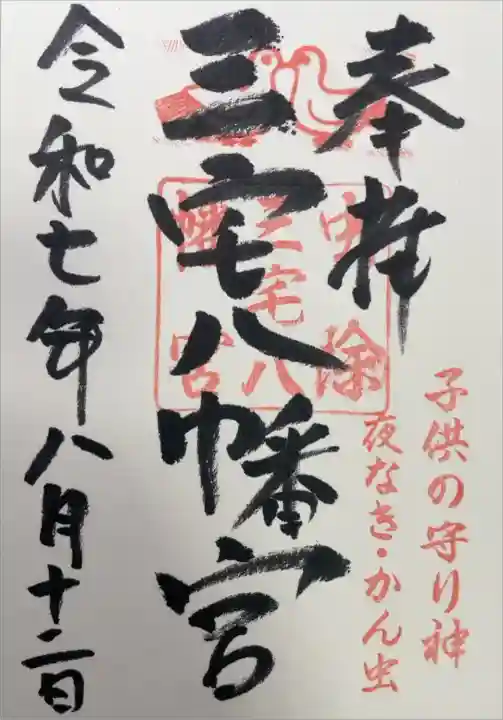 奉拝
子供の守り神
夜なき・かん虫
三宅八幡宮
虫除
三宅八
幡宮
令和七年八月十二日